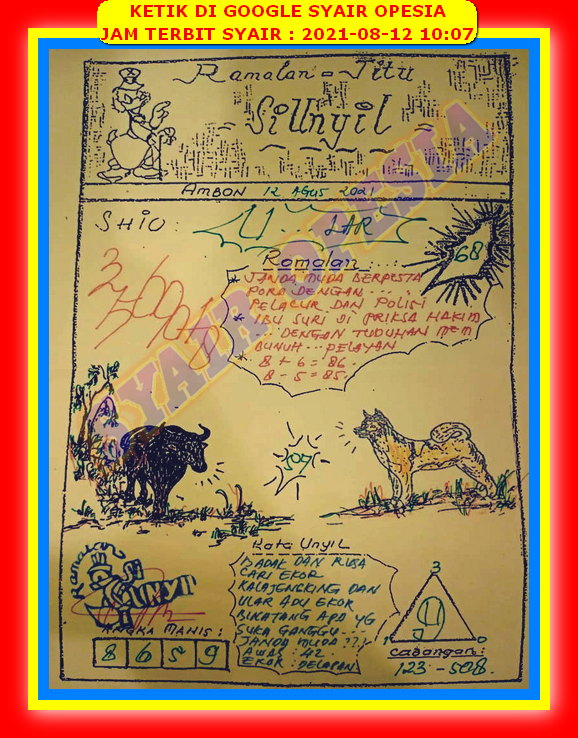 KETIK DI GOOGLE SYAIR OPESIA
JAM TERBIT SYAIR : 2021-08-12 10:07
Ramalan = Jitu
- SiUnyil -
AMBON 12 AGUS 2021
SHIO : U LAR
68
Ramalan ...:
* JANDA MUDA BERPESTA
PORA DENGAN ....
PELACUR DAN POLISI
* IBU SURI DI PRIKSA HAKIM
... DENGAN TUDUHAN MEM
BUNUH ... PELAYAN
8 + 6 = 86.
8 - 5 = 85.
SYAIR OPESIA
Kata UNYIL
BADAK DAN RUSA
CARI EKOR
KALAJENGKING DAN
ULAR ADU EKOR
BINATANG APA YG
SUKA GANGGU ...
JANDA MUDA ??
AWAS : 42.
EKOR : DELAPAN
Ramalan
Si
UNYIL
ANGKA MANIS :
8 6 5 9
3
9
1 0
Cabangan :
123 - 508.